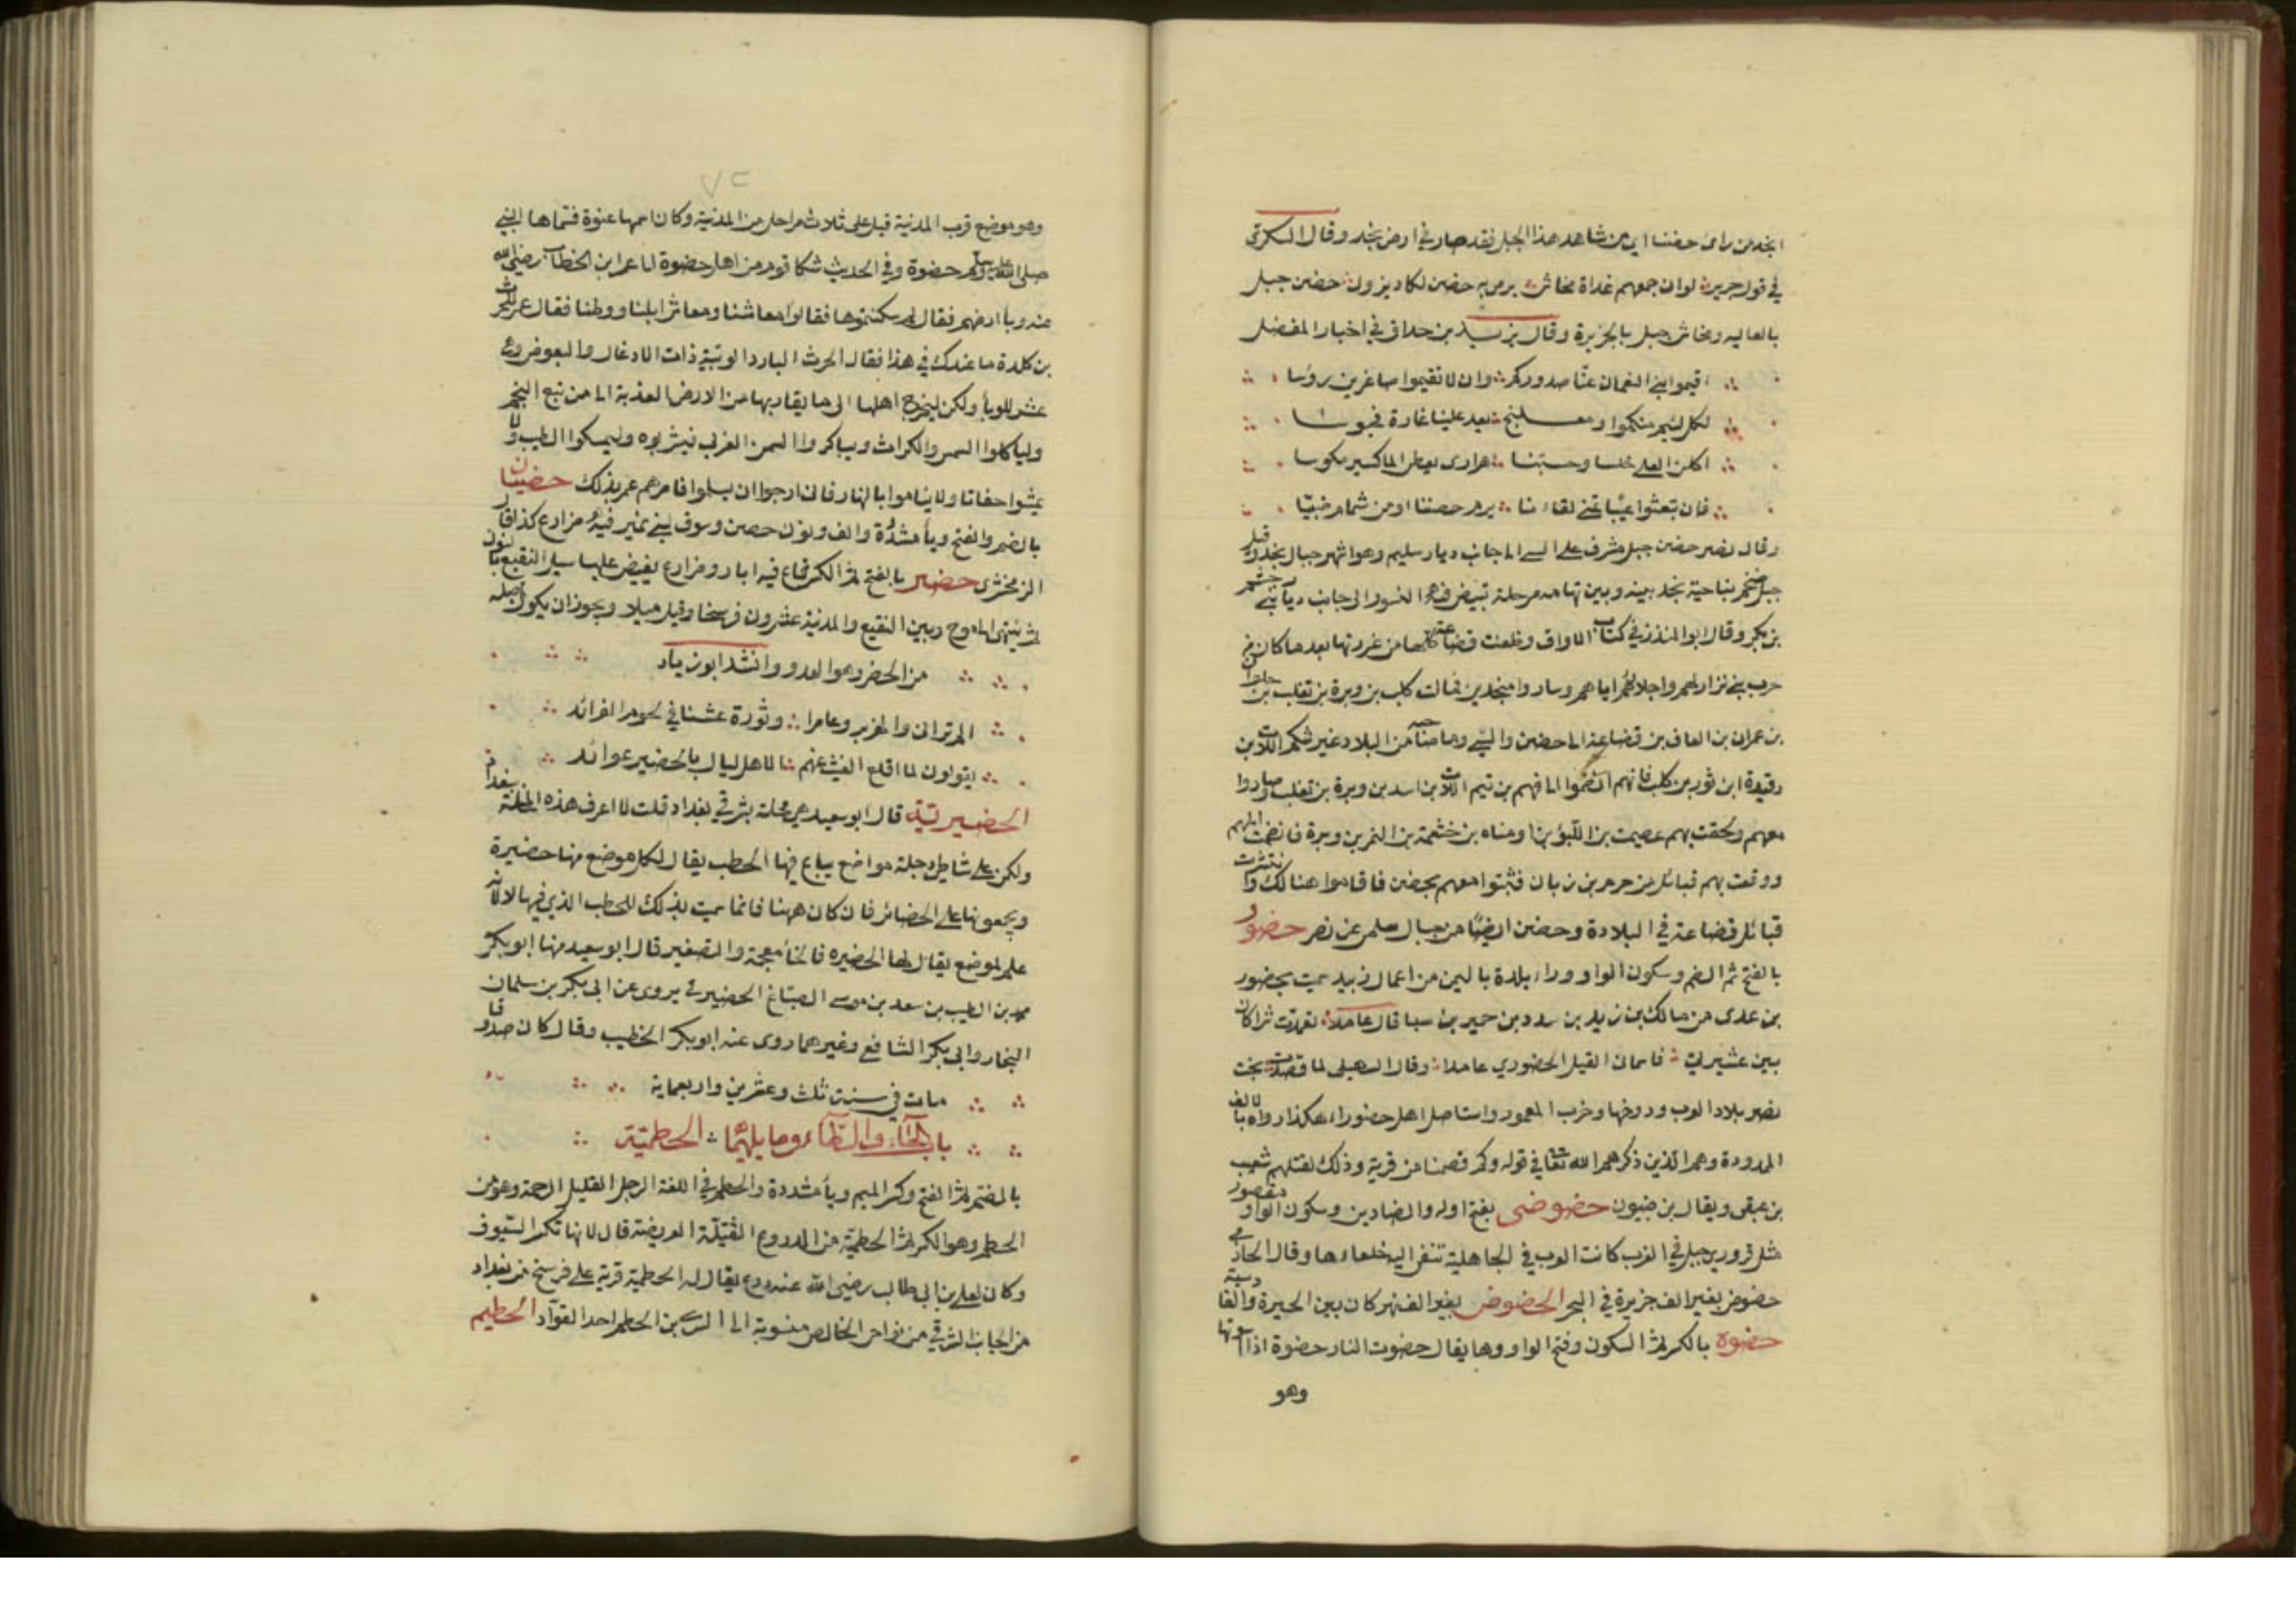 انجد من راى حضنا اي من شاهد هذا الجبل فقد صار في ارض نجد وقال السكري
في قول جرير لوان جمعهم غداة مخاشن يرمى به حضن لكاد يزول حضن جبل
بالعاليه ومخاشن جبل بالجزيرة وقال يزيد بن حداق في اخبار المفضل
اقيموا بني النعمان عنا صدوركم وان لا تقيموا صاغرين روسا
لكل لئيم منكموا ومعلهج يعد علينا غارة فجبوسا
فان تبعثوا عينا تمنى لقاءنا يرم حضنا او من شمام ضبيسا
وقال نصر حضن جبل مشرف على السي الى جانب ديار سليم وهو اشهر جبال نجد وقيل
جبل ضخم بناحية نجد بينه وبين تهامه مرحلة تبيض فيه النسور الى جانب ديار بني جشم
بن بكر وقال ابو المنذر في كتاب الافراق وظعنت قضاعة كلها من غورتها بعد ما كان من
حرب بني نزار لهم واجلائهم اياهم وساروا منجدين فمالت كلب بن وبرة بن تغلب بن حلوان
بن عمران بن الحاف بن قضاعة الى حضن والسي وما صاقبه من البلاد غير شكم اللات بن
رفيدة ابن ثور بن كلب فانهم انضموا الى فهم بن تيم اللات بن اسد بن وبرة بن تغلب وصاروا
معهم ولحقت بهم عصيمت بن اللبؤ بن امر مناه بن خثعمة بن النمر بن وبرة فانضمت اليهم
ووقعت بهم قبائل من جرم بن زبان فثبتوا معهم بحضن فاقاموا هنالك وانتشرت
قبائل قضاعة في البلادة وحضن ايضا من جبال سلمى عن نصر حضور
بالفتح ثم الضم وسكون الواو وراء بلدة باليمن من اعمال زبيد سميت بحضور
بن عدى من مالك بن زيد بن سدد بن حمير بن سبا قال عامد تغمدت شرا كان
بين عشيرتي فاسمان القيل الحضوري عامدا وقال السهيلى لما قصد بخت
نصر بلاد العرب ودوخها وخرب المعمور واستاصل اهل حضوراء هكذا رواه بالالف
الممدودة وهم الذين ذكرهم الله تعالى في قوله وكم قصمنا من قرية وذلك لقتلهم شعيب
بن عيقى ويقال بن ضيون حضوضى بفتح اوله والضادين وسكون الواو مقصور
مثل قرورى جبل في الغرب كانت العرب في الجاهلية تنفى اليه خلعاءها وقال الحازمي
حضوض بغير الف جزيرة في البحر الحضوض بغير الف نهر كان بين الحيرة والقادسية
حضوه بالكسر ثم السكون وفتح الواو وها يقال حضوت النار حضوة اذا سعرتها
وهو
٧٢
وهو موضع قرب المدنية قيل على ثلاث مراحل من المدنية وكان اسمها عنوة فسماها النبي
صلى الله عليه وسلم حضوة وفي الحديث شكا قوم من اهل حضوة الى عمر ابن الخطاب رضي الله
عنه وبا ارضهم فقال لو سكنتموها فقالوا معاشنا ومعاش ابلنا ووطنا فقال عمر للحرث
بن كلدة ما عندك في هذا فقال الحرث البلاد الوبية ذات الادغال والبعوض وهي
عش للوبا ولكن ليخرج اهلها الى ما يقاربها من الارض العذبة الى من تبع النجم
ولياكلوا البصل والكراث ويباكروا السمن العربي فيشربوه وليمسكوا الطيب ولا
يمشوا حفاتا ولا يناموا بالنهار فاني ارجوا ان يسلموا فامرهم عمر بذلك حضيان
بالضم والفتح ويا مشددة والف ونون حصن وسوق لبني نمير فيه مزارع كذا قال
الزمخشري حضير بالفتح ثم الكسر قاع فيه ابار ومزارع يفيض عليها سيل النقيع بالنون
ثم ينتهى الى مزج وبين النقيع والمدنية عشرون فرسخا وقيل ميلا ويجوز ان يكون اصله
من الحضر وهو العدو وانشد ابو زياد
الم تراني والهزبر وعامرا وثورة عشنا في لحوم الفرائد
يقولون لما اقلع الغيث عنهم الا هل ليال بالحضير عوائد
الحضيرتية قال ابو سعيد هي محلة بشرقي بغداد قلت لا اعرف هذه المحلة ببغداد
ولكن على شاطئ دجلة مواضع يباع فيها الحطب يقال لكل موضع منها حضيرة
ويجمعونها على الحضائر فان كان ههنا فانما سميت بذلك للحطب الذي فيها لا لانه
علم لموضع يقال لها الحضيره فالخا معجمة والتصغير قال ابو سعيد منها ابو بكر
محمد بن الطيب بن سعد بن موسى الصباغ الحضيري يروى عن ابى بكر بن سلمان
النجار وابى بكر الشافعي وغيرهما روى عنه ابو بكر الخطيب وقال كان صدوقا
مات في سنت ثلث وعشرين واربعماية
باب الحاء والطاء وما يليهما الحطمية
بالضم ثم الفتح وكسر الميم ويا مشددة والحطم في اللغة الرجل القليل الرحمة وهو من
الحطم وهو الكسر ثم الحطمية من الدروع الثقيلة العريضة قال لانها تكسر السيوف
وكان لعلى بن ابى طالب رضى الله عنه درع يقال له الحطمية قرية على فرسخ من بغداد
من الجانب الشرقي من نواحى الخالص منسوبة الى السرى بن الحطم احد القواد الحطيم